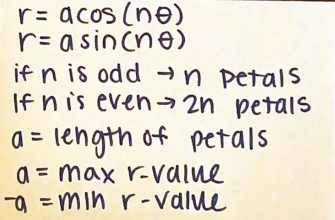 r = acos(nθ)
r = asin(nθ)
if n is odd → n petals
If n is even → 2n petals
a = length of petals
a = max r-value
-a = min r-value